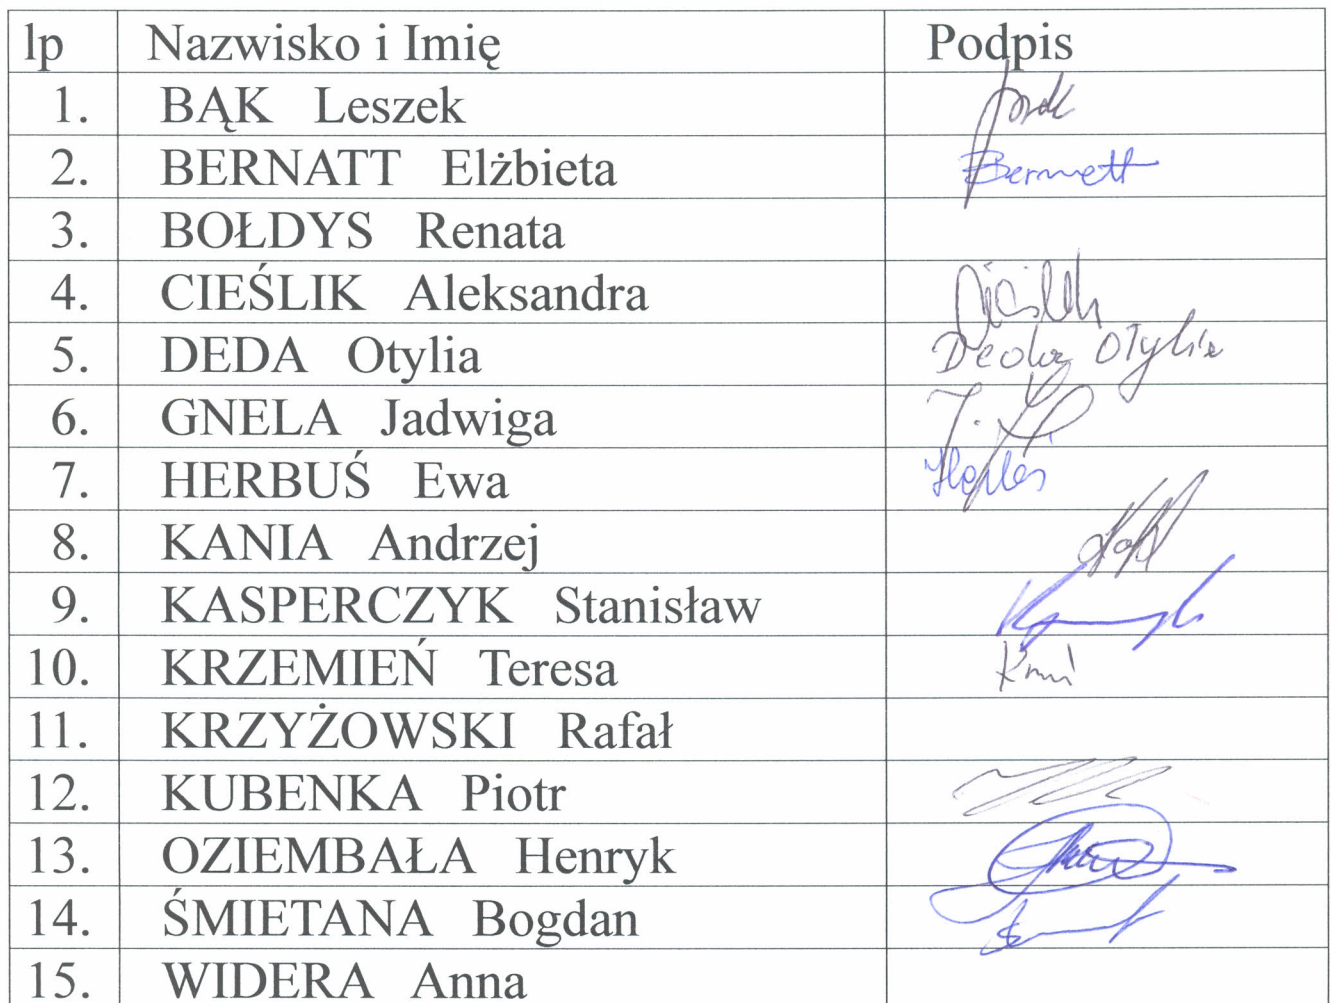 lp Nazwisko i Imię Podpis
1. BĄK Leszek
2. BERNATT Elżbieta Bernatt
3. BOŁDYS Renata
4. CIEŚLIK Aleksandra Cieślik
5. DEDA Otylia Deda Otylia
6. GNELA Jadwiga
7. HERBUŚ Ewa
8. KANIA Andrzej
9. KASPERCZYK Stanisław
10. KRZEMIEŃ Teresa
11. KRZYŻOWSKI Rafał
12. KUBENKA Piotr
13. OZIEMBAŁA Henryk
14. ŚMIETANA Bogdan
15. WIDERA Anna